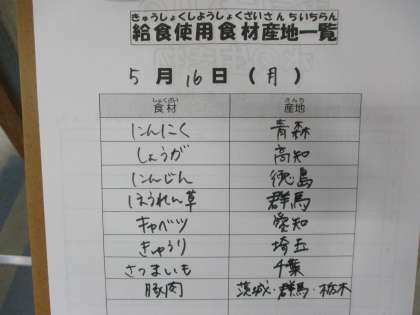 きゅうしょくしようしょくざいさんちいちらん
給食使用食材産地一覧
5月16日(月)
しょくざい さんち
食材 産地
にんにく 青森
しょうが 高知
にんじん 徳島
ほうれん草 群馬
キャベツ 愛知
きゅうり 埼玉
さつまいも 千葉
豚肉 茨城・群馬・栃木